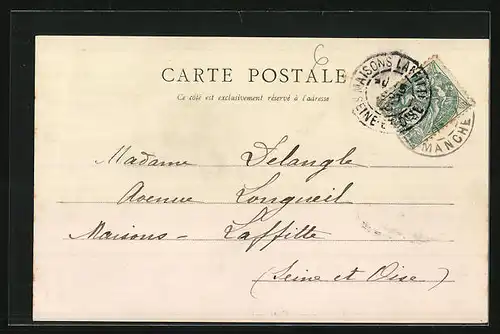 6
CARTE POSTALE
Ce côté est exclusivement réservé à l'adresse
MAISONS LAFFITTE
SEINE-ET-OISE
MANCHE
Madame Delangle
Avenue Longueil
Maisons - Laffitte
(Seine et Oise)